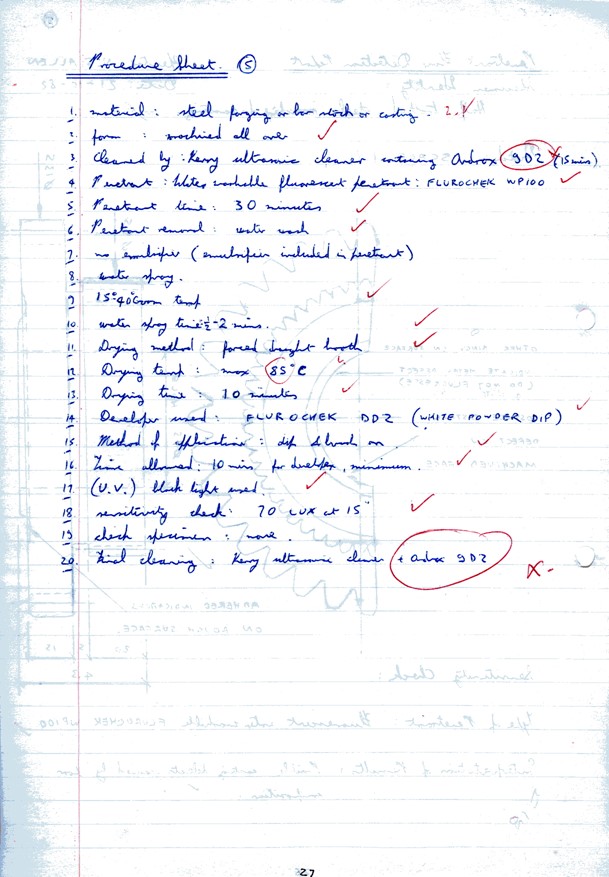 Procedure Sheet. 5
1. material : steel forging or bar stock or casting. 2.?
2. form : machined all over
3. Cleaned by : Kerry ultrasonic cleaner containing Ardrox 9D2 (15 min)
4. Penetrant : Water washable fluorescent penetrant : FLUROCHEK WP100
5. Penetrant time : 30 minutes
6. Penetrant removal : water wash
7. no emulsifier (emulsifier included in penetrant)
8. water spray.
9 15°-40° room temp
10. water spray time ½-2 mins.
11. Drying method : forced draught booth
12 Drying temp : max 85°C
13. Drying time : 10 minutes
14 Developer used : FLUROCHEK DD2 (WHITE POWDER DIP)
15. Method of application : dip & brush on
16. Time allowed : 10 mins for developer, minimum.
17. (U.V.) black light used.
18 sensitivity check : 70 LUX at 15"
19 check specimen : none.
20. Final cleaning : Kerry ultrasonic cleaner + Ardrox 9D2
X.
27